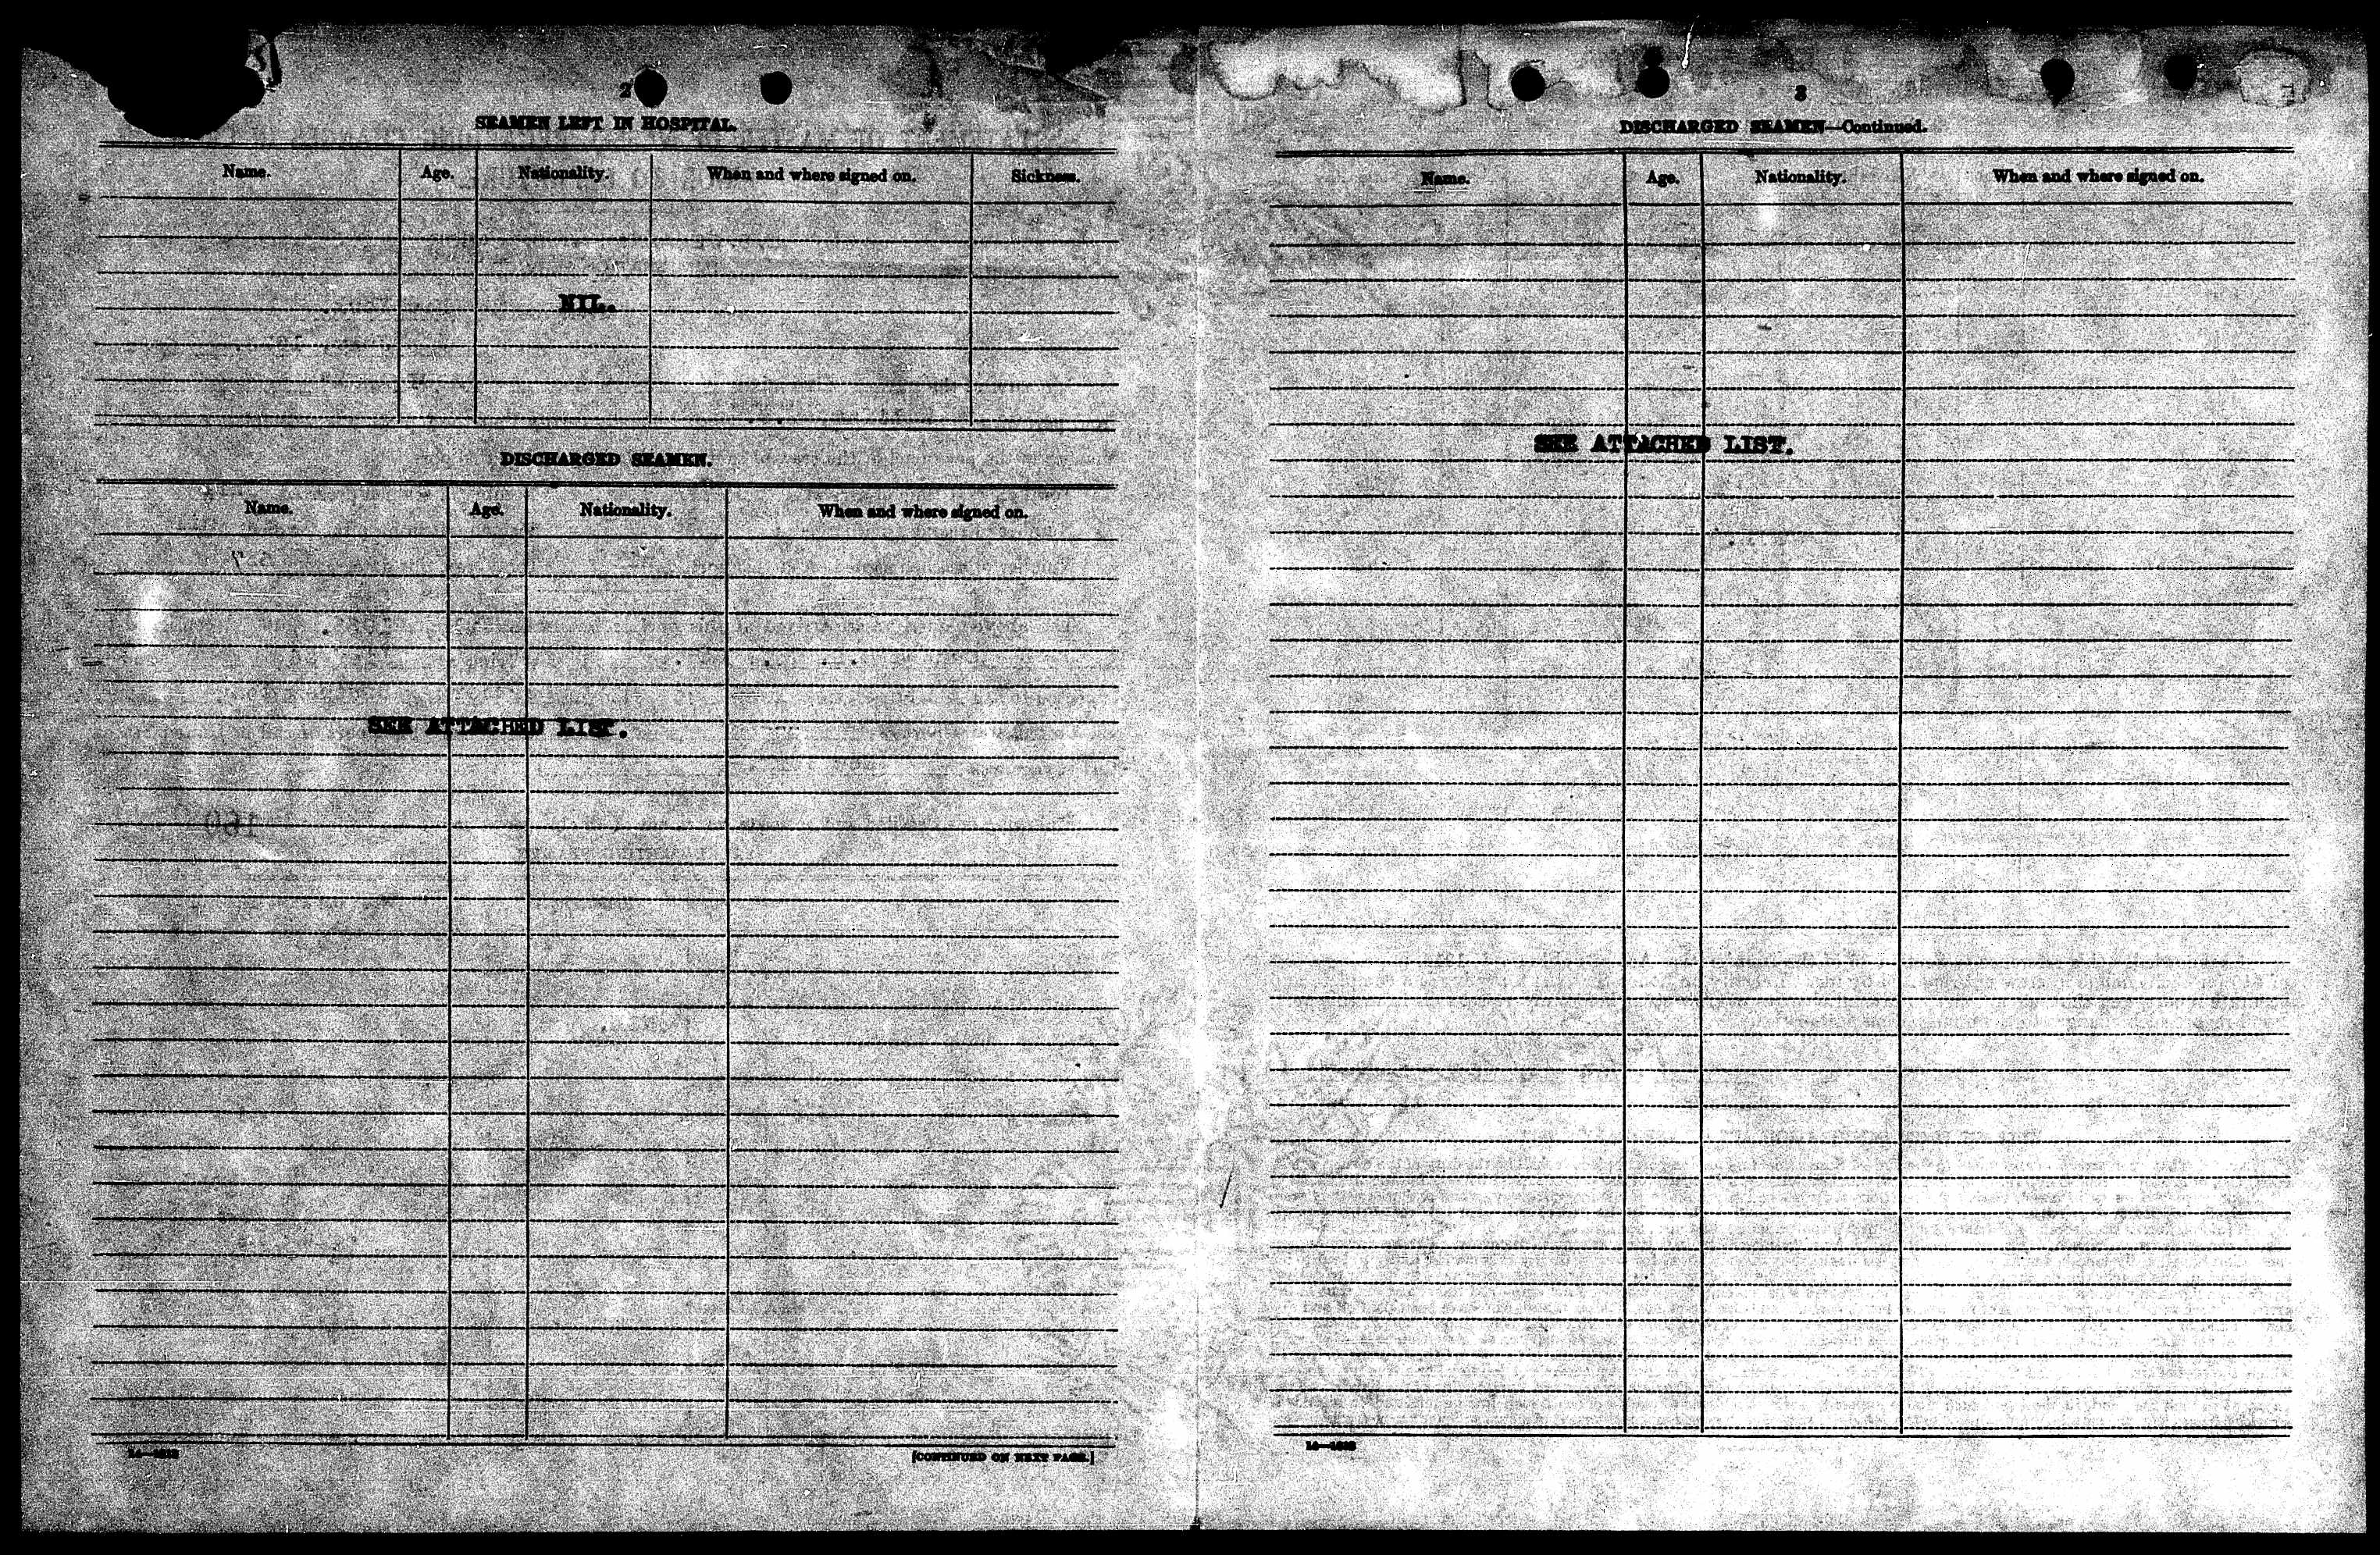 2
SEAMEN LEFT IN HOSPITAL.
Name. Age. Nationality. When and where signed on. Sickness.
NIL.
DISCHARGED SEAMEN.
Name. Age. Nationality. When and where signed on.
SEE ATTACHED LIST.
160
[CONTINUED ON NEXT PAGE.]
3
DISCHARGED SEAMEN—Continued.
Name. Age. Nationality. When and where signed on.
SEE ATTACHED LIST.